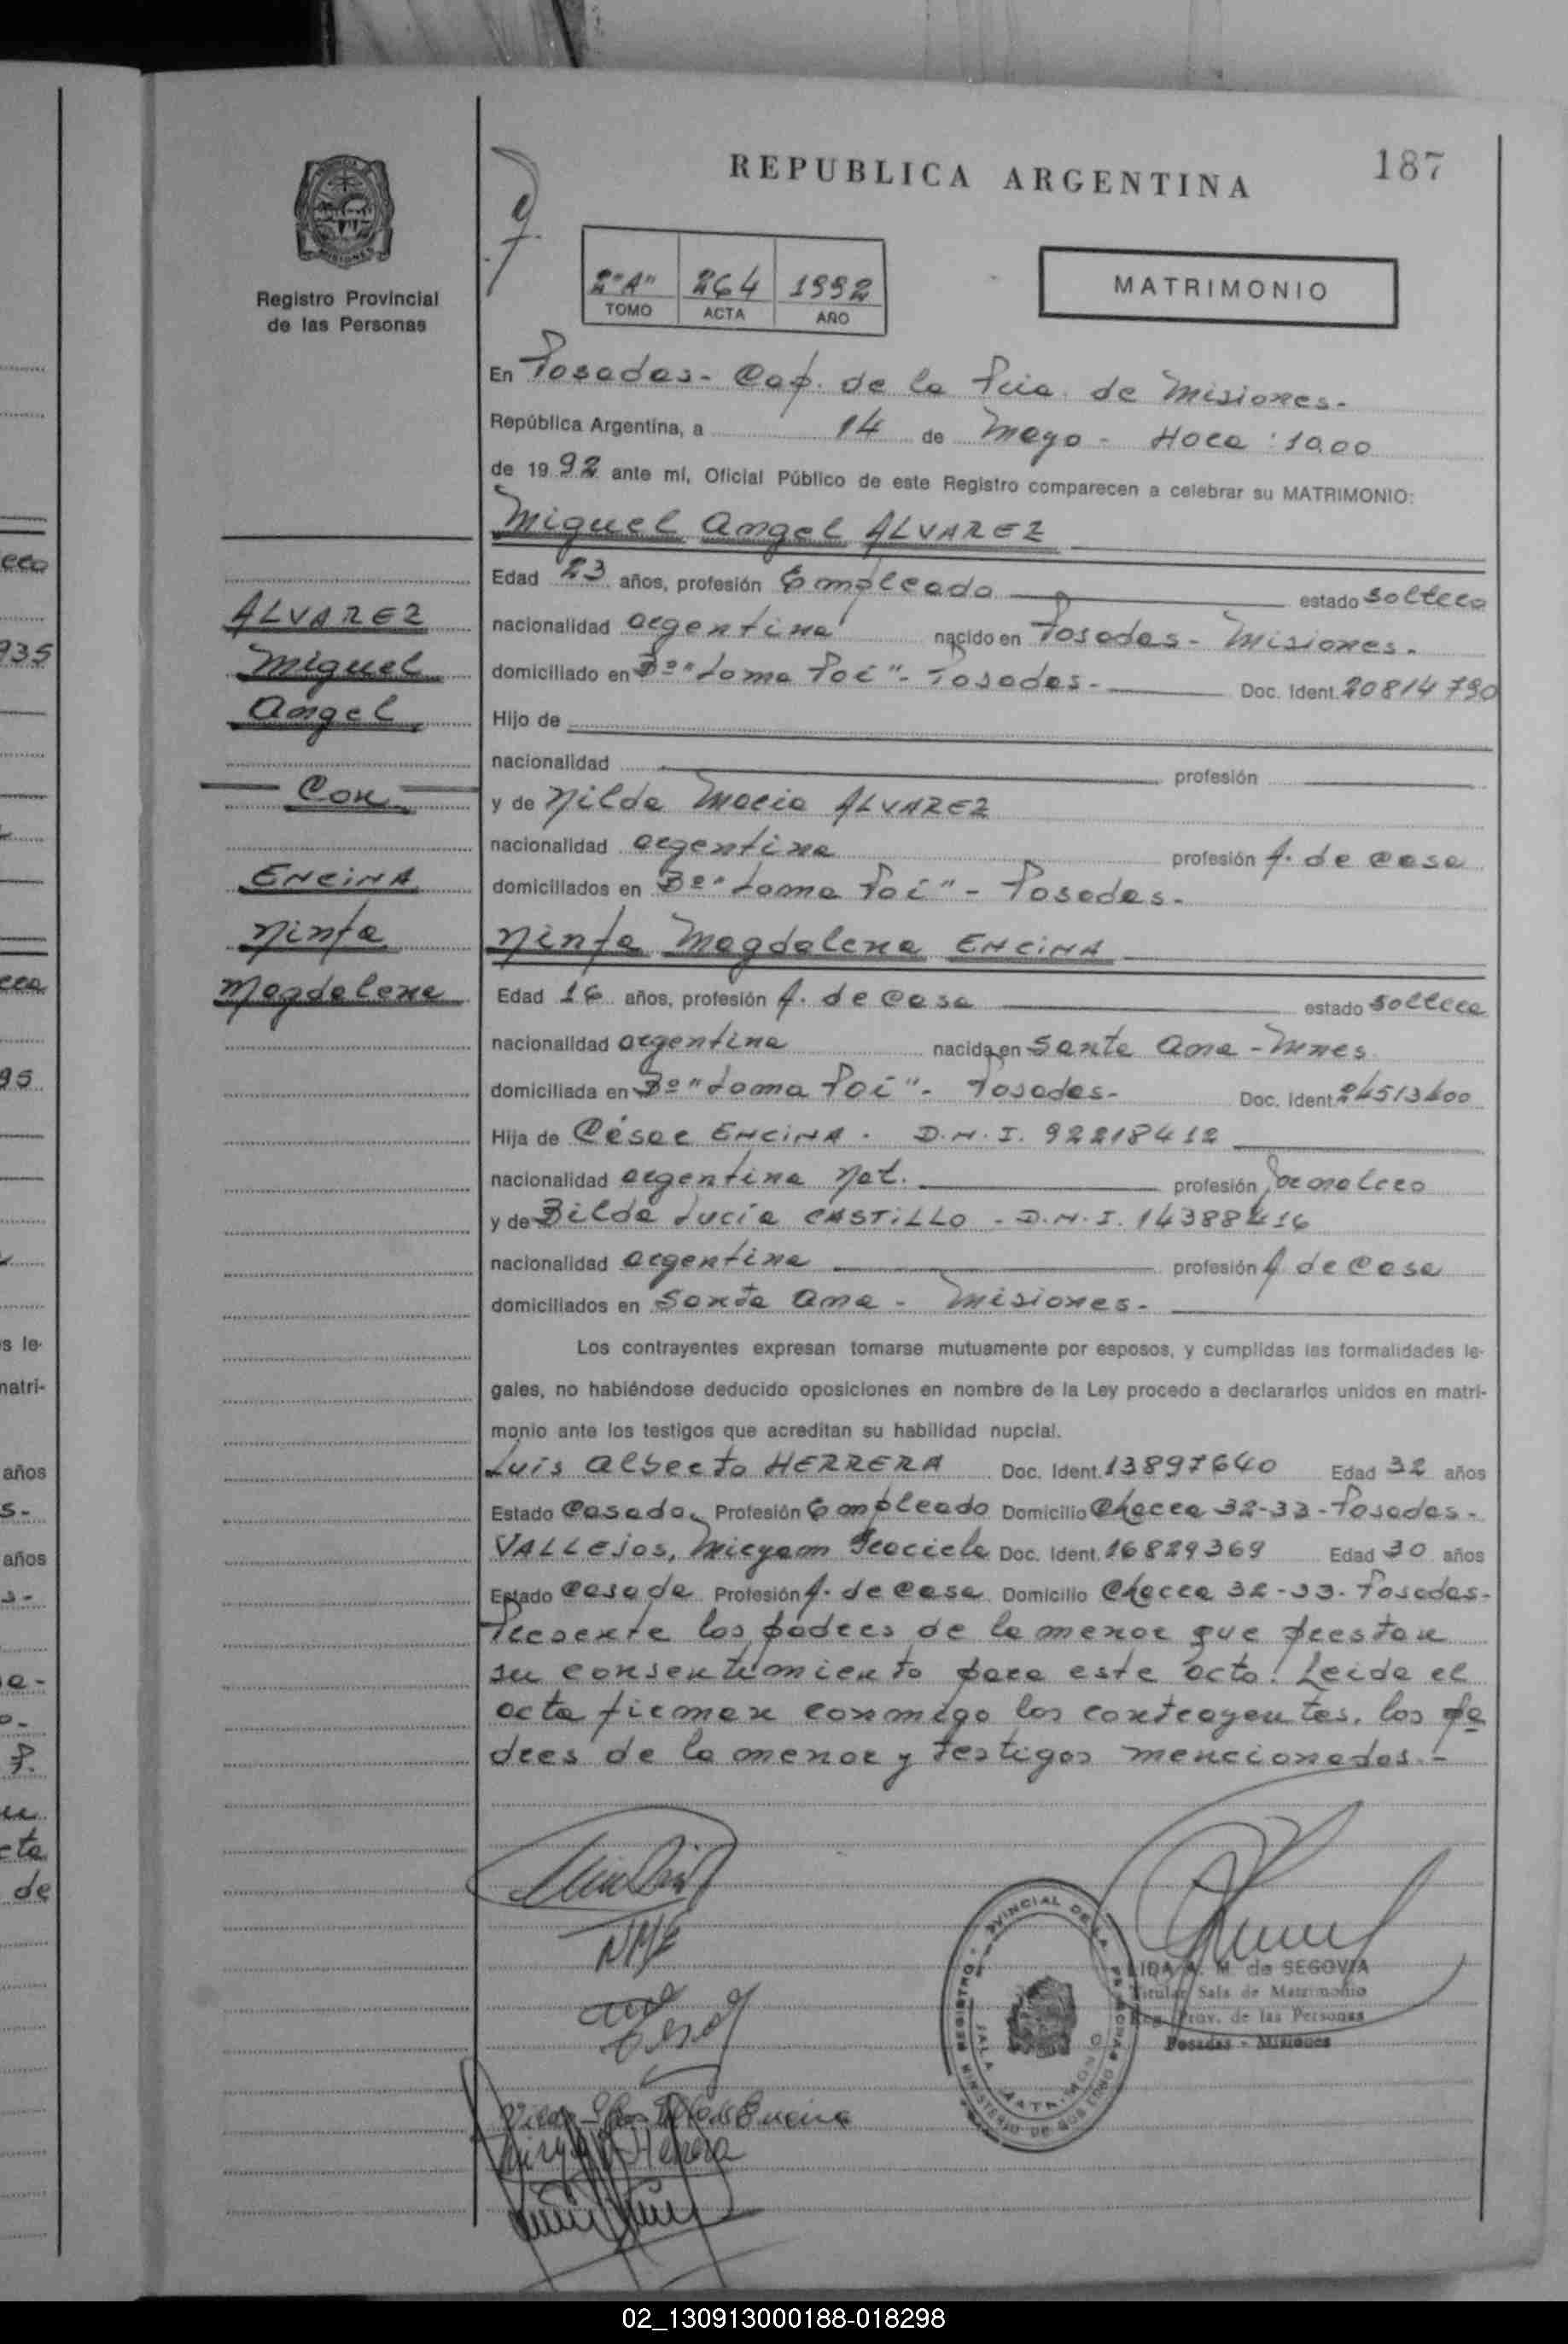 187
REPUBLICA ARGENTINA
Registro Provincial
de las Personas
2"A" 264 1992
TOMO ACTA AÑO
MATRIMONIO
En Posadas - Cap. de la Pcia. de Misiones.-
República Argentina, a 14 de Mayo - Hora: 10,00
de 1992 ante mí, Oficial Público de este Registro comparecen a celebrar su MATRIMONIO:
Miguel Angel ALVAREZ
Edad 23 años, profesión Empleado estado soltero
nacionalidad argentina nacido en Posadas - Misiones.
domiciliado en Bº "Loma Poi" - Posadas - Doc. Ident. 20814790
Hijo de
nacionalidad profesión
y de Nilda Maria ALVAREZ
nacionalidad argentina profesión A. de casa
domiciliados en Bº "Loma Poi" - Posadas.-
ALVAREZ
Miguel
Angel
Con
ENCINA
Ninfa
Magdalena
Ninfa Magdalena ENCINA
Edad 16 años, profesión A. de casa estado soltera
nacionalidad argentina nacida en Santa Ana - Mnes.
domiciliada en Bº "Loma Poi" - Posadas - Doc. Ident. 24513400
Hija de César ENCINA. D.N.I. 92218412
nacionalidad argentina Nat. profesión Jornalero
y de Bilda Lucía CASTILLO - D.N.I. 14388416
nacionalidad argentina profesión A. de Casa
domiciliados en Santa Ana - Misiones.-
Los contrayentes expresan tomarse mutuamente por esposos, y cumplidas las formalidades le-
gales, no habiéndose deducido oposiciones en nombre de la Ley procedo a declararlos unidos en matri-
monio ante los testigos que acreditan su habilidad nupcial.
Luis Alberto HERRERA Doc. Ident. 13897640 Edad 32 años
Estado Casado, Profesión Empleado Domicilio Chacra 32-33 - Posadas -
VALLEJOS, Miryam Graciela Doc. Ident. 16829369 Edad 30 años
Estado Casada Profesión A. de Casa Domicilio Chacra 32-33. Posadas-
Presente los padres de la menor que prestan
su consentimiento para este acto. Leida el
acta firman conmigo los contrayentes, los pa
dres de la menor y testigos mencionados.-
NME
de SEGOVIA
Titular Sala de Matrimonio
Reg. Prov. de las Personas
Posadas - Misiones
REGISTRO PROVINCIAL DE LAS PERSONAS
SALA MATRIMONIO
MINISTERIO DE GOBIERNO
02_130913000188-018298